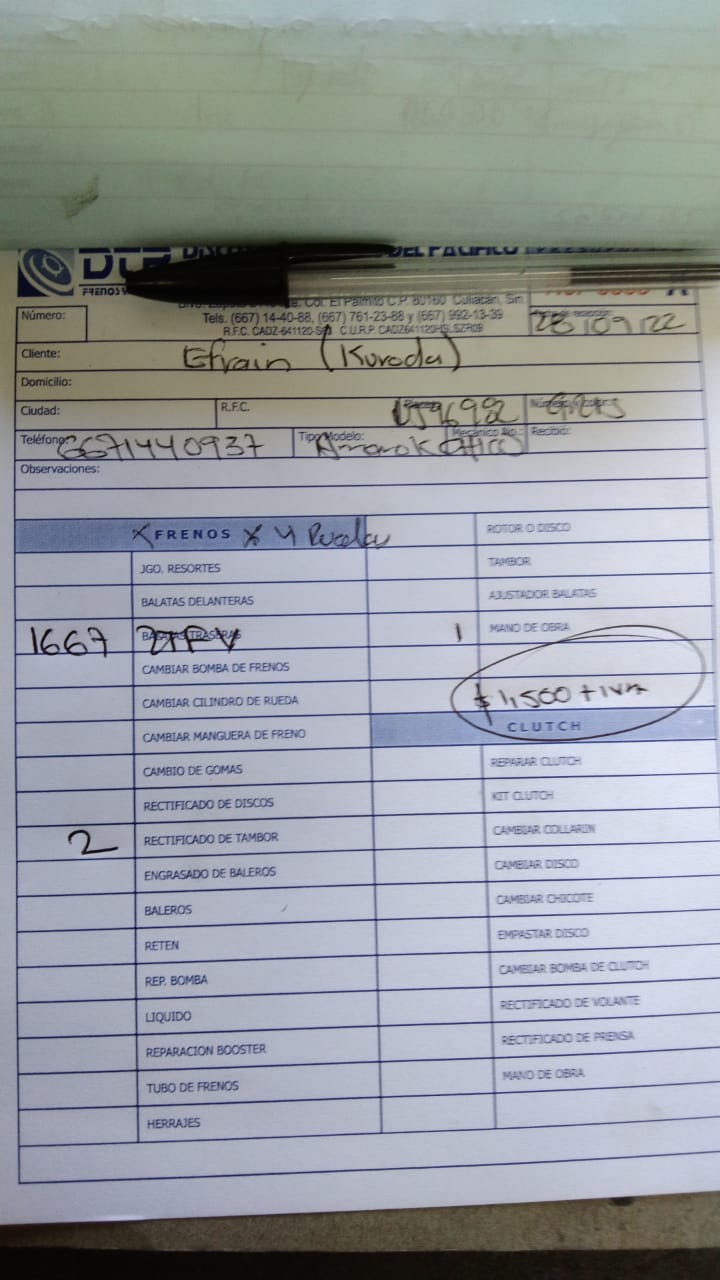 DTP DEL PACIFICO
FRENOS
Col. El Palmito C.P. 80160 Culiacán, Sin
Número: Tels. (667) 14-40-88, (667) 761-23-88 y (667) 992-13-39
R.F.C. CADZ-641120- C.U.R.P. 28/09/22
Cliente: Efrain (Kuroda)
Domicilio:
Ciudad: R.F.C. Placas:
Teléfono: 6671440937 Tipo Modelo: Amarok Mecánico No.: Recibió:
Observaciones:
X FRENOS X 4 Ruedas ROTOR O DISCO
JGO. RESORTES TAMBOR
BALATAS DELANTERAS AJUSTADOR BALATAS
1667 BALATAS TRASERAS 1 MANO DE OBRA
CAMBIAR BOMBA DE FRENOS
CAMBIAR CILINDRO DE RUEDA $1,500 + iva
CAMBIAR MANGUERA DE FRENO CLUTCH
CAMBIO DE GOMAS REPARAR CLUTCH
RECTIFICADO DE DISCOS KIT CLUTCH
2 RECTIFICADO DE TAMBOR CAMBIAR COLLARIN
ENGRASADO DE BALEROS CAMBIAR DISCO
BALEROS CAMBIAR CHICOTE
RETEN EMPASTAR DISCO
REP. BOMBA CAMBIAR BOMBA DE CLUTCH
LIQUIDO RECTIFICADO DE VOLANTE
REPARACION BOOSTER RECTIFICADO DE PRENSA
TUBO DE FRENOS MANO DE OBRA
HERRAJES